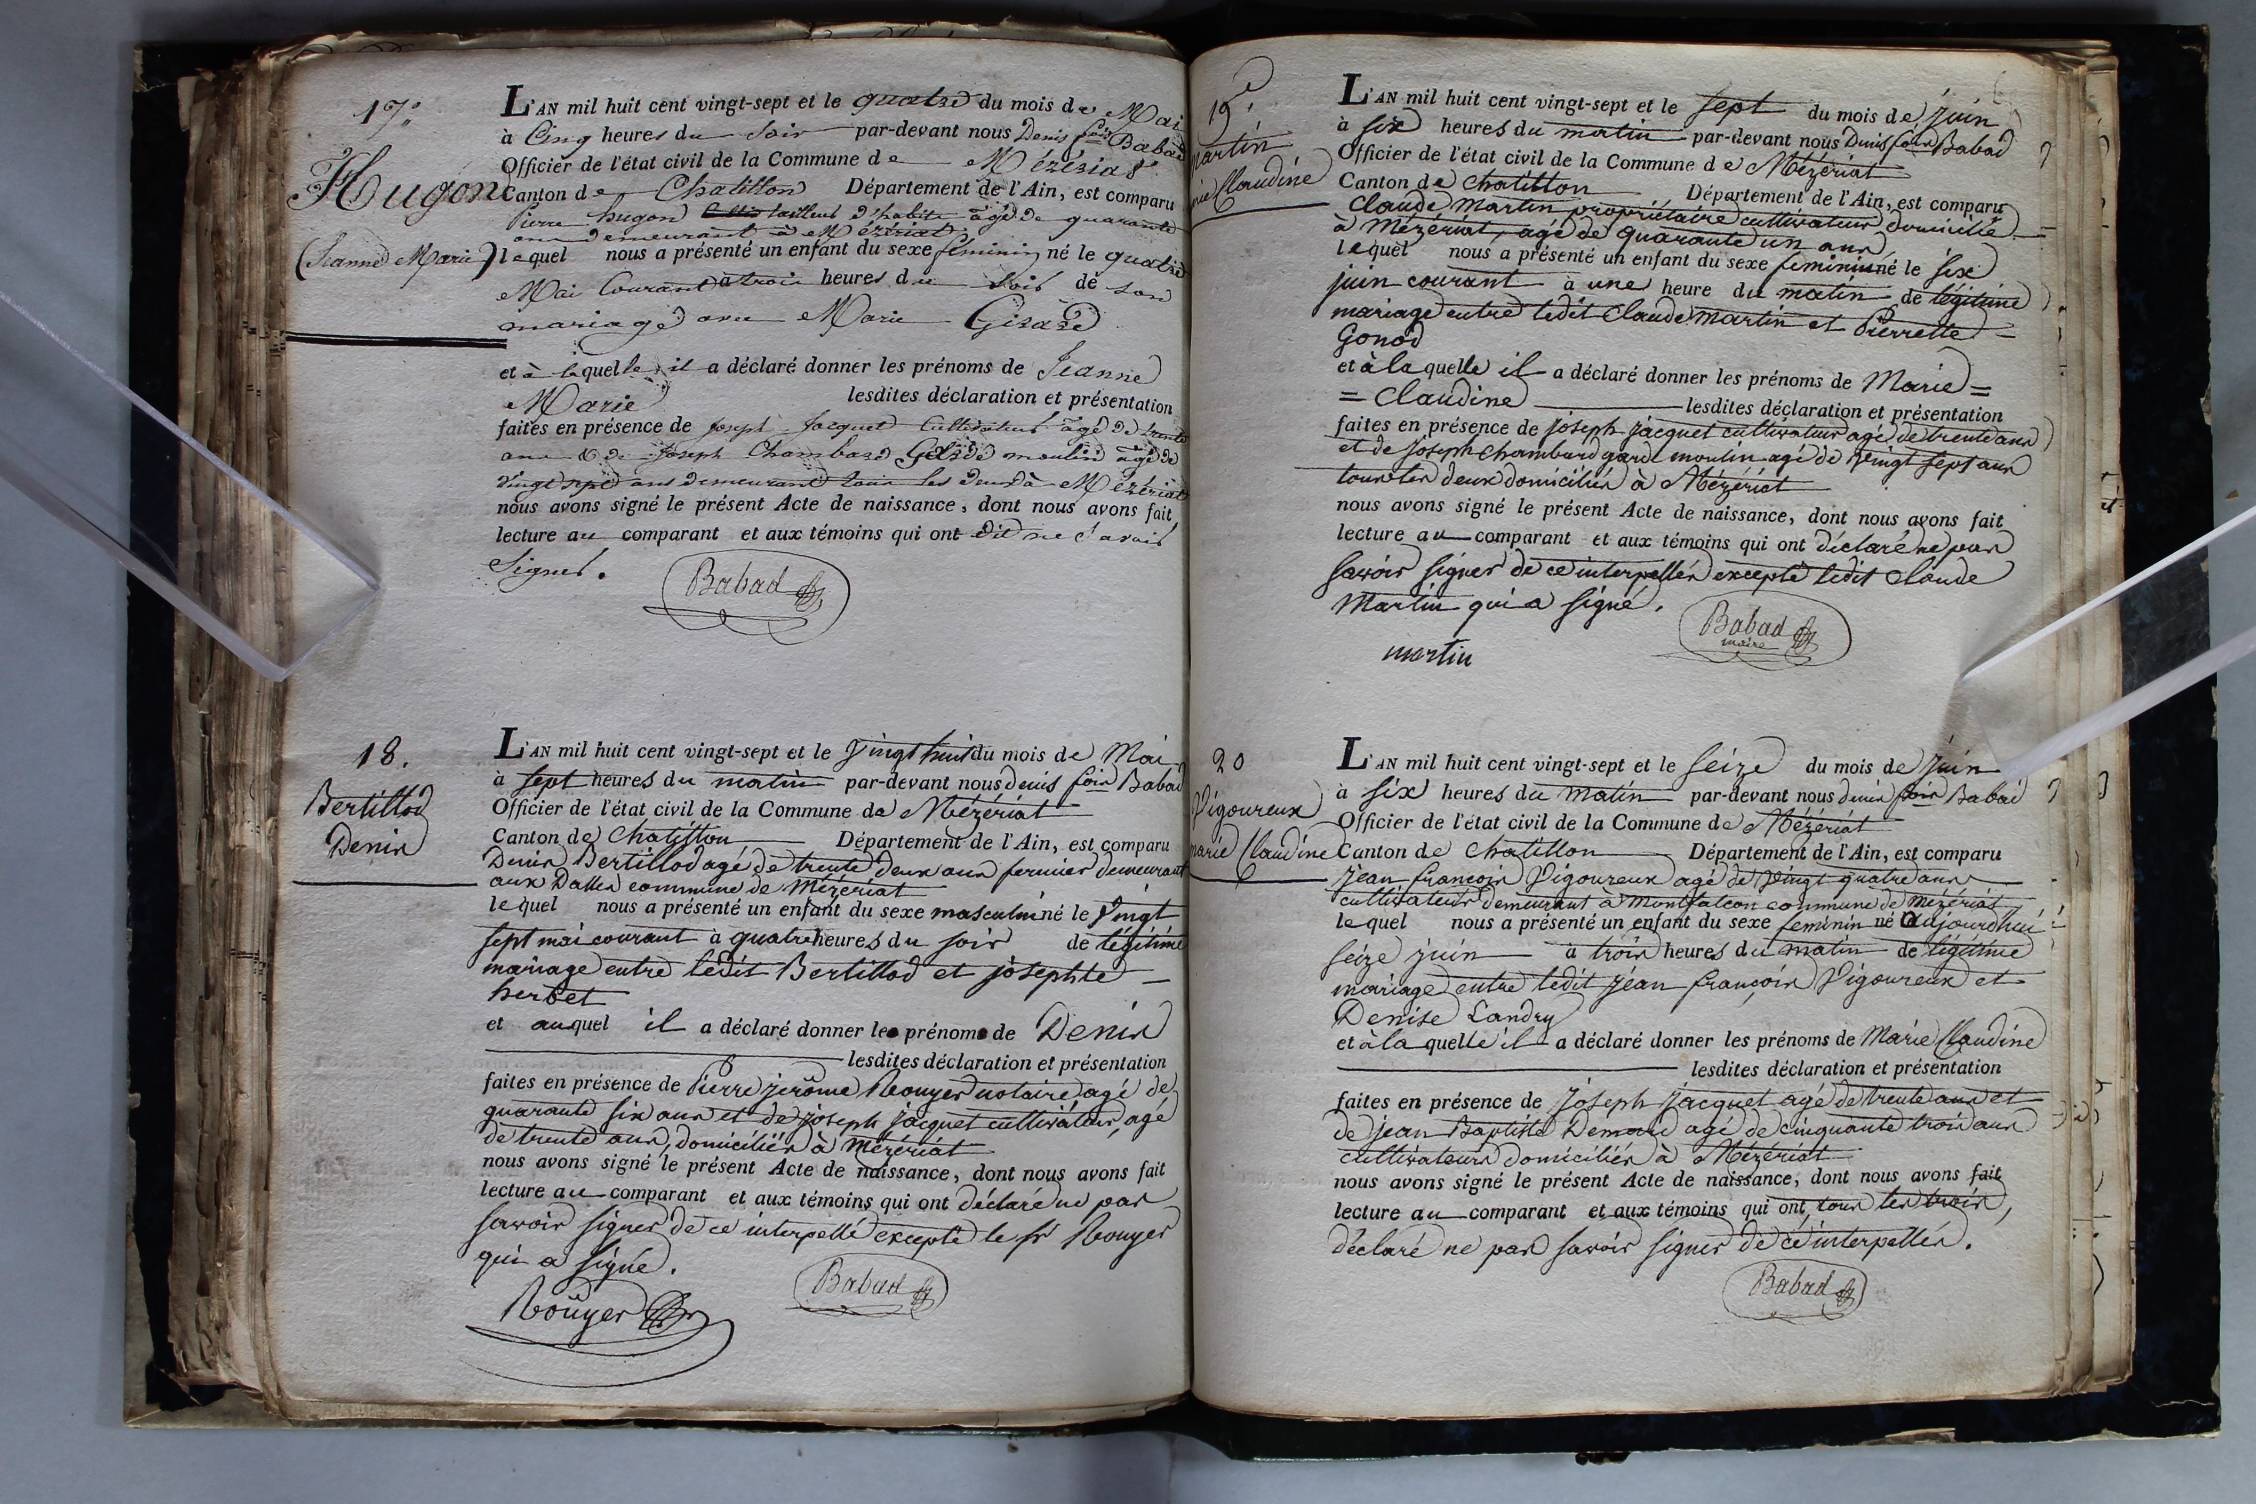 17.
Hugon
(Jeanne Marie)
L'AN mil huit cent vingt-sept et le quatre du mois de Mai
à Cinq heures du soir par-devant nous Denis fois Babad
Officier de l'état civil de la Commune de Mézériat
Canton de Chatillon Département de l'Ain, est comparu
Pierre hugon tailleur d'habits âgé de quarante
ans demeurant à Mézériat
lequel nous a présenté un enfant du sexe féminin né le quatre
Mai Courant à trois heures du soir de son
mariage avec Marie Girard
et à laquelle il a déclaré donner les prénoms de Jeanne
Marie lesdites déclaration et présentation
faites en présence de Joseph Jacquet Cultivateur âgé de trente
ans & de Joseph Chambard Garde moulin âgé de
vingt sept ans demeurant tous les deux à Mézériat
nous avons signé le présent Acte de naissance, dont nous avons fait
lecture au comparant et aux témoins qui ont dit ne savoir
signer.
Babad
18.
Bertillod
Denis
L'AN mil huit cent vingt-sept et le vingt huit du mois de Mai
à sept heures du matin par-devant nous denis fois Babad
Officier de l'état civil de la Commune de Mézériat
Canton de Chatillon Département de l'Ain, est comparu
Denis Bertillod agé de trente deux ans fermier demeurant
aux Dalles commune de Mézériat
lequel nous a présenté un enfant du sexe masculin né le vingt
sept mai courant à quatre heures du soir de légitime
mariage entre ledit Bertillod et josephte
herbet
et auquel il a déclaré donner le prénom de Denis
lesdites déclaration et présentation
faites en présence de Pierre jerôme Rouyer notaire agé de
quarante six ans et de joseph jacquet cultivateur, agé
de trente ans, domiciliés à Mézériat
nous avons signé le présent Acte de naissance, dont nous avons fait
lecture au comparant et aux témoins qui ont déclaré ne pas
savoir signer de ce interpellé excepté le sr Rouyer
qui a signé.
Roüyer
Babad
19e
Martin
Claudine
L'AN mil huit cent vingt-sept et le sept du mois de juin
à six heures du matin par-devant nous Denis fois Babad
Officier de l'état civil de la Commune de Mézériat
Canton de Chatillon Département de l'Ain, est comparu
Claude Martin propriétaire cultivateur domicilié
à Mézériat, agé de quarante un ans
lequel nous a présenté un enfant du sexe feminin né le six
juin courant à une heure du matin de légitime
mariage entre ledit Claude Martin et Pierrette
Gonod
et à laquelle il a déclaré donner les prénoms de Marie =
= Claudine lesdites déclaration et présentation
faites en présence de joseph jacquet cultivateur agé de trente ans
et de joseph chambard garde moulin agé de vingt sept ans
tous les deux domiciliés à Mézériat
nous avons signé le présent Acte de naissance, dont nous avons fait
lecture au comparant et aux témoins qui ont déclaré ne pas
savoir signer de ce interpellés excepté ledit Claude
Martin qui a signé.
Babad
maire
martin
20
Vigoureux
marie Claudine
L'AN mil huit cent vingt-sept et le seize du mois de juin
à six heures du matin par-devant nous denis fois Babad
Officier de l'état civil de la Commune de Mézériat
Canton de Chatillon Département de l'Ain, est comparu
jean françois Vigoureux agé de vingt quatre ans
cultivateur demeurant à Montfalcon commune de Mézériat
lequel nous a présenté un enfant du sexe feminin né aujourdhui
seize juin à trois heures du matin de légitime
mariage entre ledit jean françois Vigoureux et
Denise Landry
et à laquelle il a déclaré donner les prénoms de Marie Claudine
lesdites déclaration et présentation
faites en présence de joseph jacquet agé de trente ans et
de jean Baptiste agé de cinquante trois ans
cultivateurs domiciliés à Mézériat
nous avons signé le présent Acte de naissance, dont nous avons fait
lecture au comparant et aux témoins qui ont, tous les trois,
déclaré ne pas savoir signer de ce interpellés.
Babad